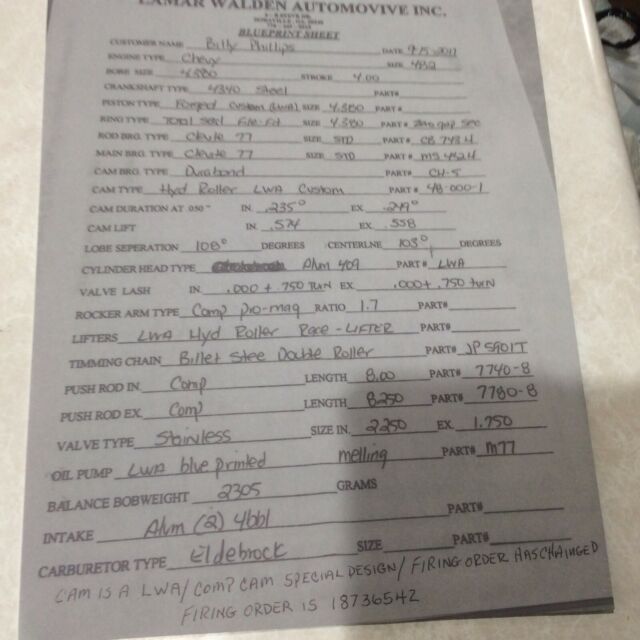 LAMAR WALDEN AUTOMOVIVE INC.
BLUEPRINT SHEET
CUSTOMER NAME Billy Phillips DATE 9-15-2011
ENGINE TYPE Chevy SIZE 482
BORE SIZE 4.380 STROKE 4.00
CRANKSHAFT TYPE 4340 Steel PART#
PISTON TYPE Forged Custom (LWA) SIZE 4.380 PART#
RING TYPE Total Seal File-Fit SIZE 4.380 PART# Zero gap
ROD BRG. TYPE Clevite 77 SIZE STD PART# CB 743 4
MAIN BRG. TYPE Clevite 77 SIZE STD PART# MS
CAM BRG. TYPE Durabond PART# CH-5
CAM TYPE Hyd Roller LWA Custom PART# 48-000-1
CAM DURATION AT .050" IN .235° EX .249°
CAM LIFT IN .574 EX .558
LOBE SEPERATION 108° DEGREES CENTERLNE 103° DEGREES
CYLINDER HEAD TYPE Alum 409 PART# LWA
VALVE LASH IN .000 + .750 turn EX .000 + .750 turn
ROCKER ARM TYPE Comp pro-mag RATIO 1.7 PART#
LIFTERS LWA Hyd Roller Race-LIFTER PART#
TIMMING CHAIN Billet Stee Double Roller PART# JP5901T
PUSH ROD IN Comp LENGTH 8.00 PART# 7740-8
PUSH ROD EX Comp LENGTH 8.250 PART# 7780-8
VALVE TYPE Stainless SIZE IN. 2.250 EX. 1.750
OIL PUMP LWA blue printed melling PART# M77
BALANCE BOBWEIGHT 2305 GRAMS
INTAKE Alum (2) 4bbl PART#
CARBURETOR TYPE Eldebrock SIZE PART#
CAM IS A LWA/COMP CAM SPECIAL DESIGN/ FIRING ORDER HAS CHAINGED
FIRING ORDER IS 18736542